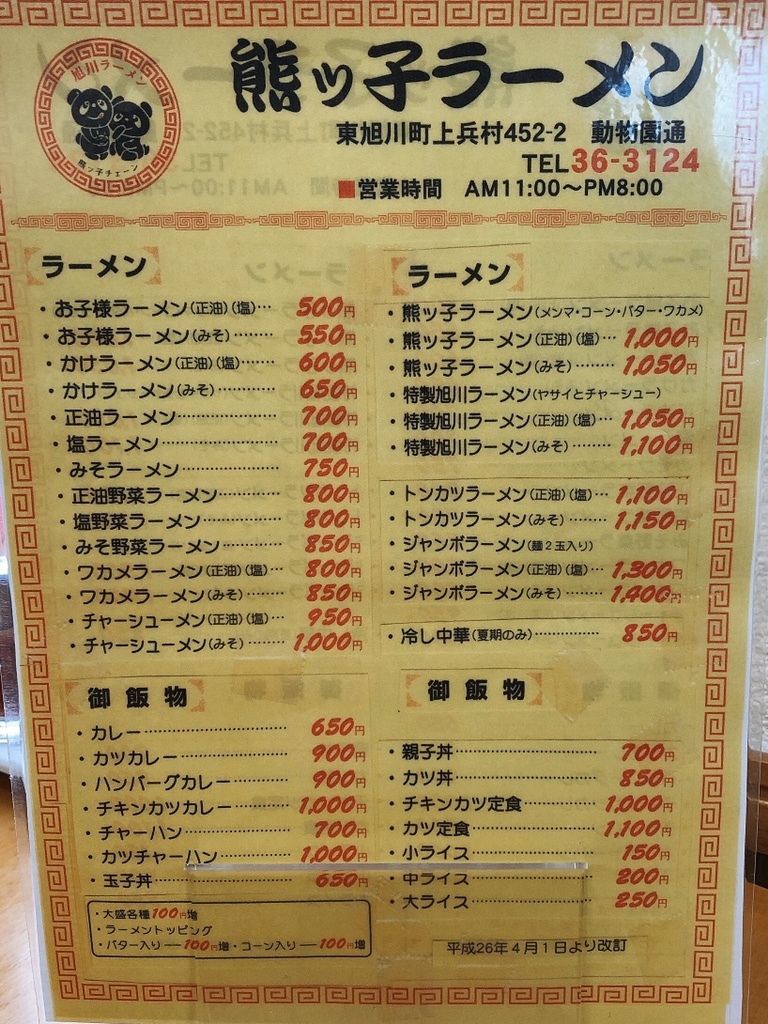 旭川ラーメン
熊ッ子チェーン
熊ッ子ラーメン
東旭川町上兵村452-2 動物園通
TEL36-3124
■営業時間 AM11:00〜PM8:00
ラーメン
・お子様ラーメン(正油)(塩)… 500円
・お子様ラーメン(みそ)……… 550円
・かけラーメン(正油)(塩)…… 600円
・かけラーメン(みそ)………… 650円
・正油ラーメン………………… 700円
・塩ラーメン…………………… 700円
・みそラーメン………………… 750円
・正油野菜ラーメン…………… 800円
・塩野菜ラーメン……………… 800円
・みそ野菜ラーメン…………… 850円
・ワカメラーメン(正油)(塩)… 800円
・ワカメラーメン(みそ)……… 850円
・チャーシューメン(正油)(塩)… 950円
・チャーシューメン(みそ)…… 1,000円
ラーメン
・熊ッ子ラーメン(メンマ・コーン・バター・ワカメ)
・熊ッ子ラーメン(正油)(塩)… 1,000円
・熊ッ子ラーメン(みそ)……… 1,050円
・特製旭川ラーメン(ヤサイとチャーシュー)
・特製旭川ラーメン(正油)(塩)… 1,050円
・特製旭川ラーメン(みそ)…… 1,100円
・トンカツラーメン(正油)(塩)… 1,100円
・トンカツラーメン(みそ)…… 1,150円
・ジャンボラーメン(麺2玉入り)
・ジャンボラーメン(正油)(塩)… 1,300円
・ジャンボラーメン(みそ)…… 1,400円
・冷し中華(夏期のみ)………… 850円
御飯物
・カレー………………………… 650円
・カツカレー…………………… 900円
・ハンバーグカレー…………… 900円
・チキンカツカレー…………… 1,000円
・チャーハン…………………… 700円
・カツチャーハン……………… 1,000円
・玉子丼………………………… 650円
・大盛各種100円増
・ラーメントッピング
・バター入り―100円増・コーン入り―100円増
御飯物
・親子丼………………………… 700円
・カツ丼………………………… 850円
・チキンカツ定食……………… 1,000円
・カツ定食……………………… 1,100円
・小ライス……………………… 150円
・中ライス……………………… 200円
・大ライス……………………… 250円
平成26年4月1日より改訂